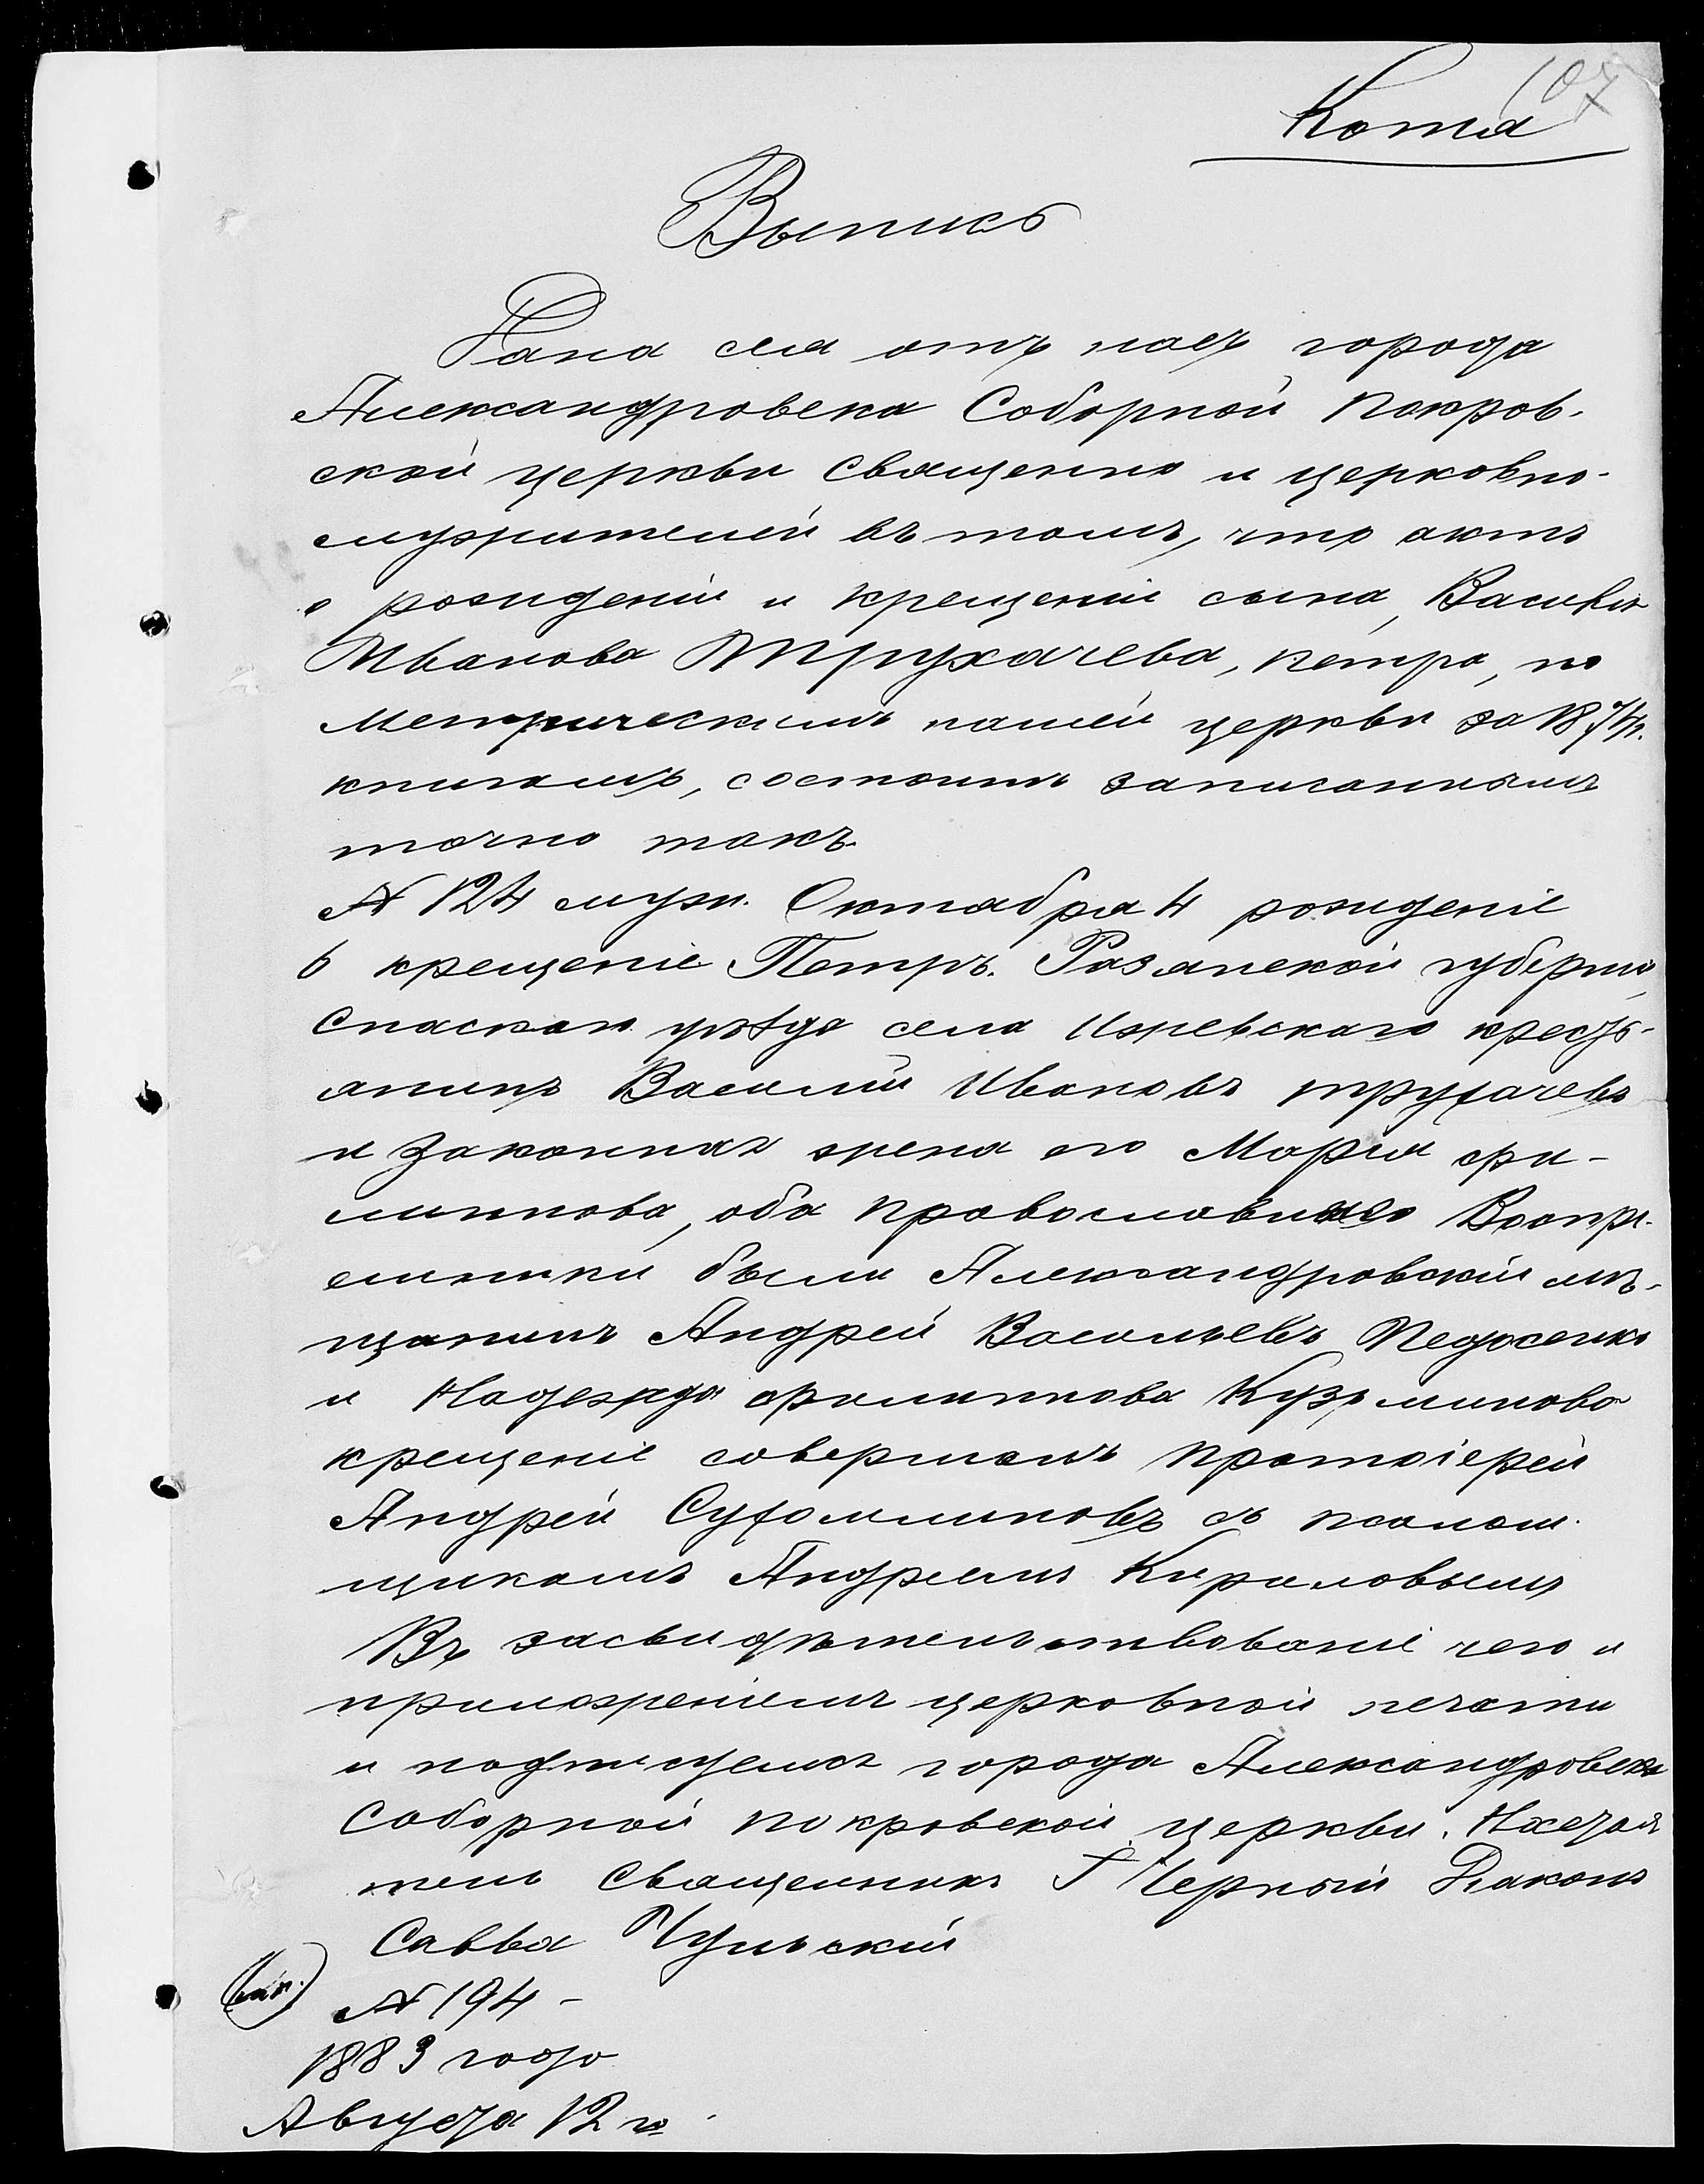 107
Копія
Выпись
Дана сія отъ насъ города
Александровска Соборной Покров-
ской церкви священно и церковно-
служителей въ томъ, что актъ
о рожденіи и крещеніи сына, Василія
Иванова Трухачева, Петра, по
метрическимъ нашей церкви за 1874 г.
книгамъ, состоитъ записаннымъ
точно такъ.
№ 124 муж. Октября 4 рожденіе
6 крещеніе Петръ. Рязанской губерніи,
Спаскаго уѣзда села Ижевскаго кресть-
янинъ Василій Ивановъ Трухачевъ
и законная жена его Марія Фи-
липпова, оба православнаго Воспрі-
емники были Александровскій мѣ-
щанинъ Андрей Васильевъ Педосенко
и Надежда Филиппова Кузьминова
крещеніе совершалъ протоіерей
Андрей Сухомлиновъ съ псалом-
щикомъ Андреемъ Кириловымъ
Въ засвидѣтельствованіе чего и
приложеніемъ церковной печати
и подписуемся города Александровска
Соборной Покровской церкви. Настоя
тель Священникъ Г Черный Діаконъ
Савва Чульскій
№ 194 -
1883 года
Августа 12 го